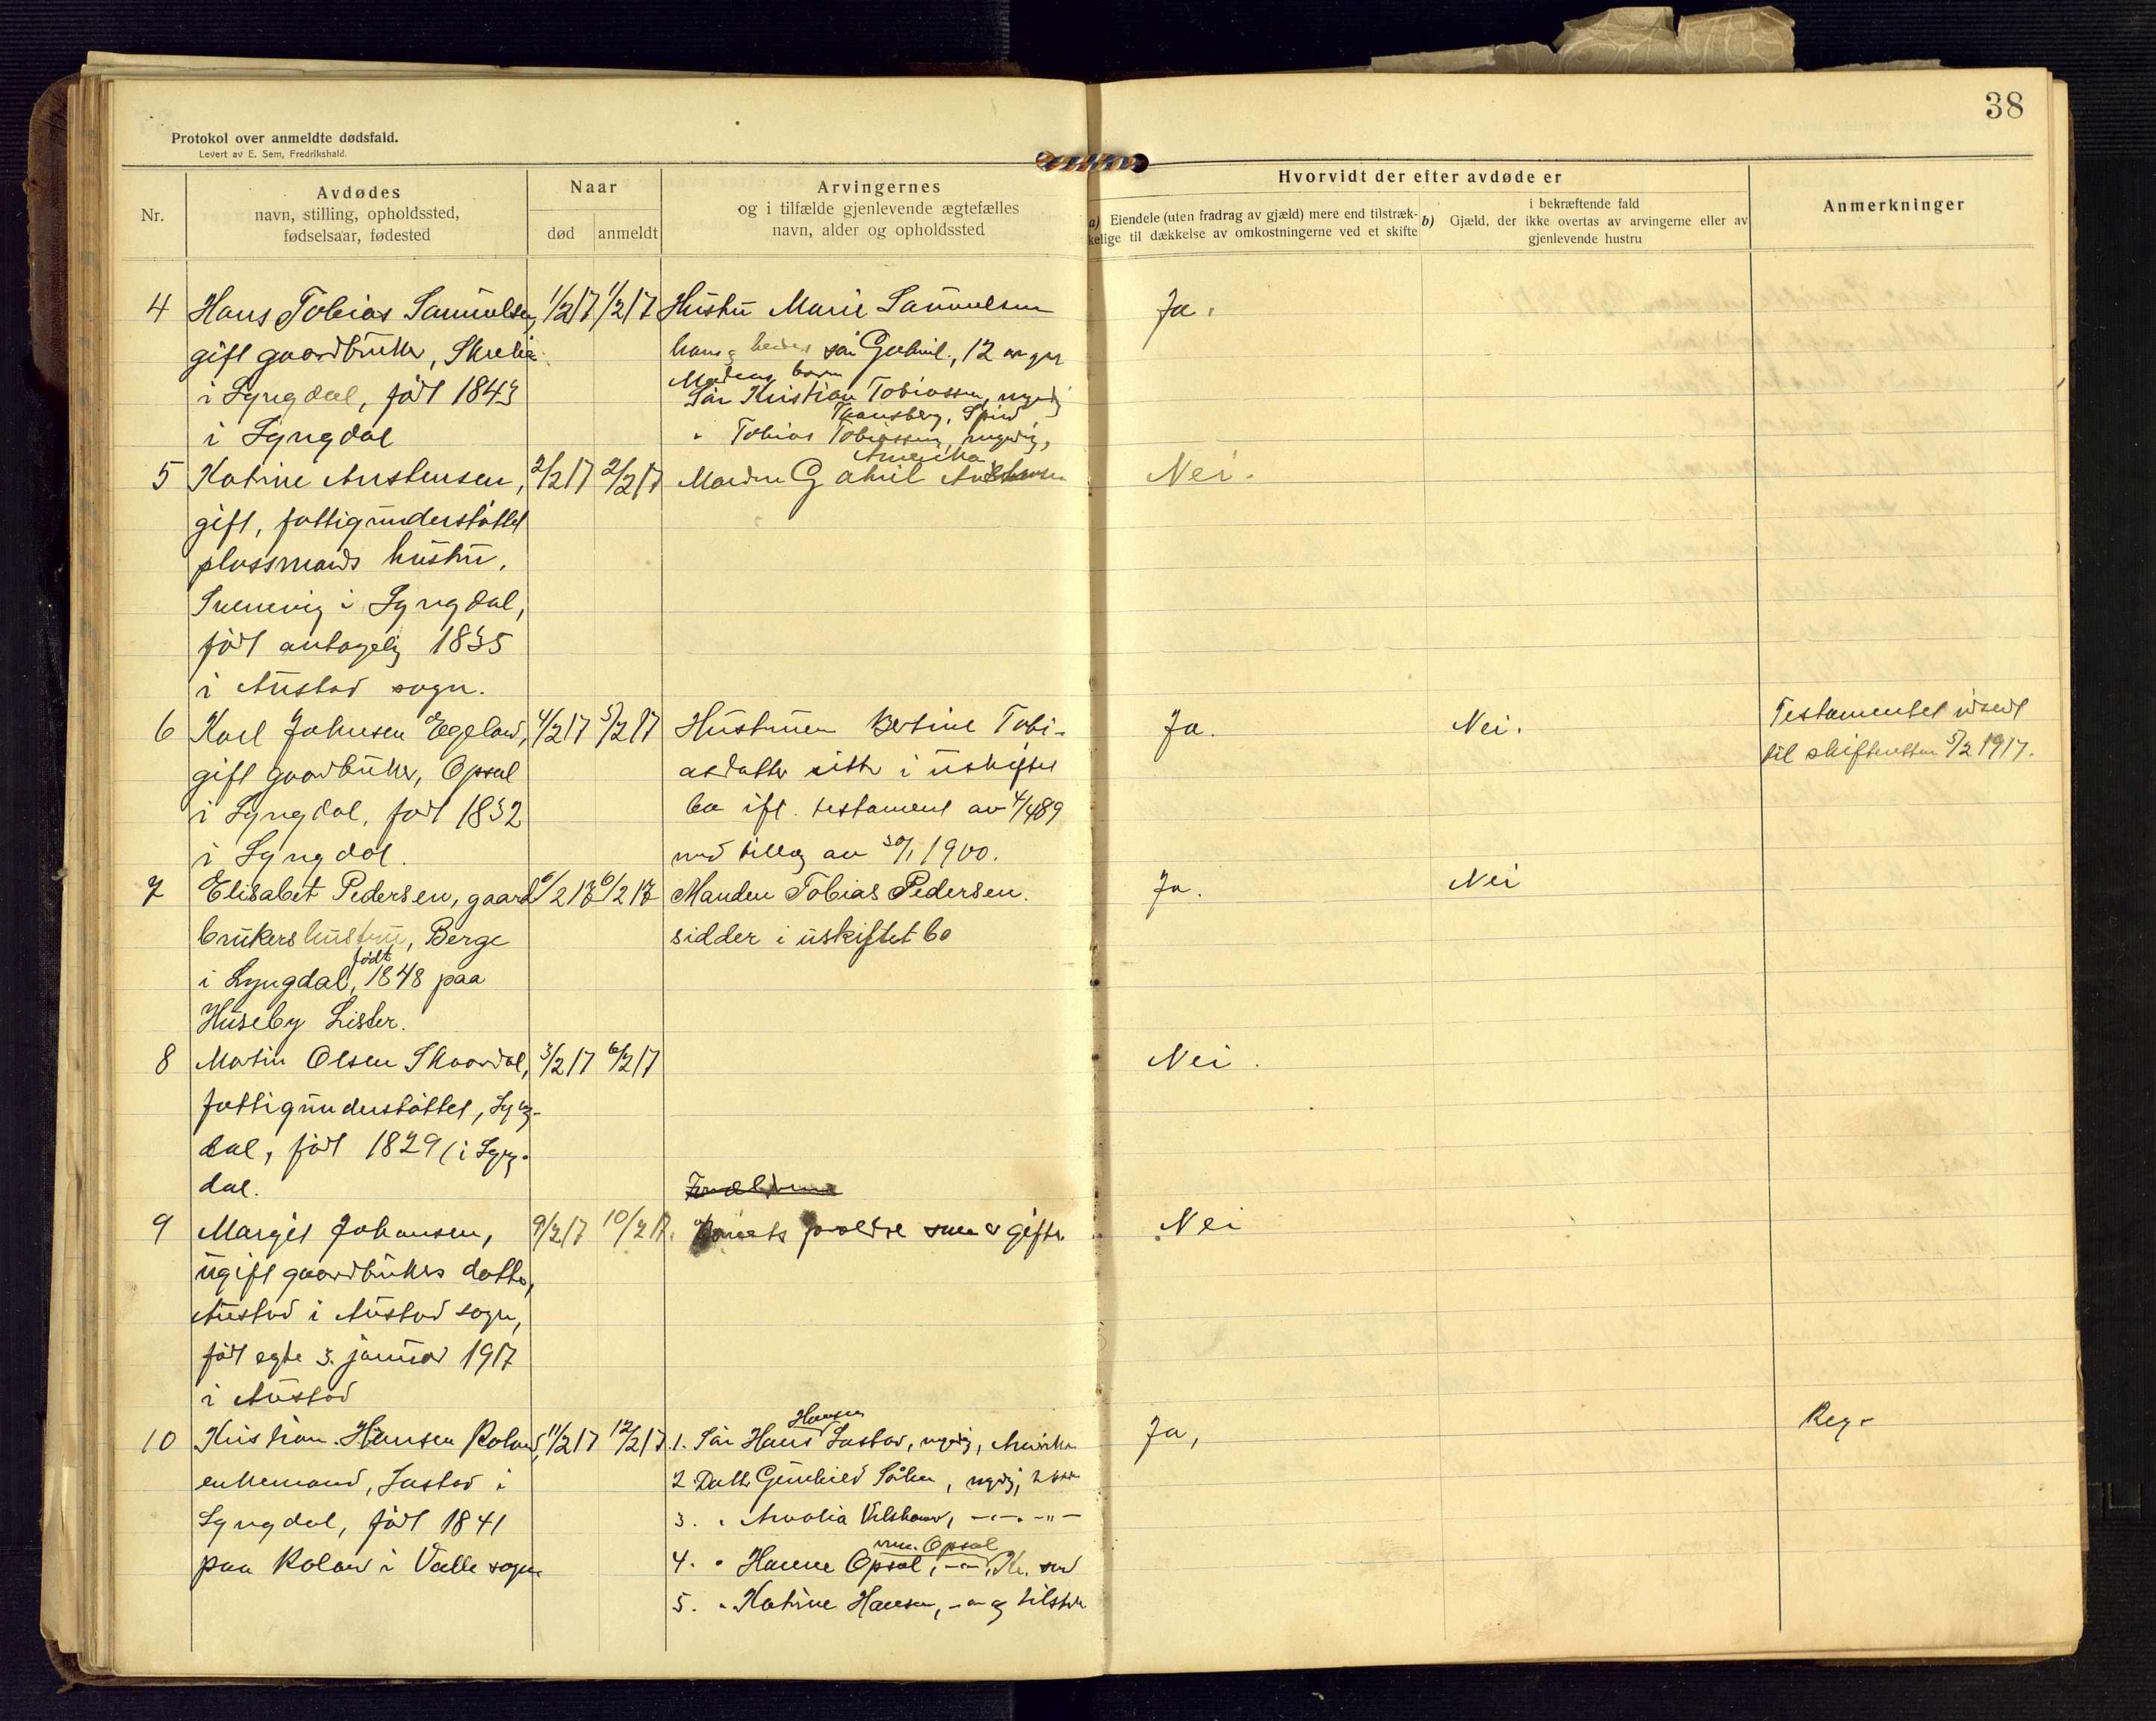 38
Protokol over anmeldte dødsfald.
Levert av E. Sem, Fredrikshald.
Nr.
Avdødes
navn, stilling, opholdssted,
fødselsaar, fødested
Naar
død
anmeldt
Arvingernes
og i tilfælde gjenlevende ægtefælles
navn, alder og opholdssted
Hvorvidt der efter avdøde er
a) Eiendele (uten fradrag av gjæld) mere end tilstræk-
kelige til dækkelse av omkostningerne ved et skifte
i bekræftende fald
b) Gjæld, der ikke overtas av arvingerne eller av
gjenlevende hustru
Anmerkninger
4 Hans Tobias Samuelsen, 1/2 17 1/2 17 Hustru Marie Samuelsen Ja.
gift gaardbruker,
i Lyngdal, født 1843
i Lyngdal
søn Gabriel, 12 aar gml
Søn Kristian Tobiassen, myndig
Spind
" Tobias Tobiassen, myndig,
Amerika
5 Katrine Austensen, 2/2 17 2/2 17 Manden Gabriel Nei.
gift, fattigunderstøttet
plassmands hustru,
i Lyngdal,
født antagelig 1835
i Austad sogn.
6 Karl Johnsen Egeland, 4/2 17 5/2 17 Hustruen Bertine Tobi- Ja. Nei. Testamentet utsendt
gift gaardbruker, Opsal asdatter sitter i uskiftet til skifteretten 5/2 1917.
i Lyngdal, født 1832 bo ifl. testament av 4/4 89
i Lyngdal. med tillæg av 30/1 1900.
7 Elisabet Pedersen, gaard 6/2 17 6/2 17 Manden Tobias Pedersen. Ja. Nei
brukers hustru, Berge sidder i uskiftet bo
i Lyngdal, født 1848 paa
Huseby Lister.
8 Martin Olsen Skaardal, 3/2 17 6/2 17 Nei.
fattigunderstøttet, Lyng-
dal, født 1829 i Lyng-
dal.
9 Margit Johansen, 9/2 17 10/2 17. forældre som er gifte Nei
ugift gaardbrukers datter,
Austad i Austad sogn,
født egte 3. januar 1917
i Austad
10 Kristian Hansen Roland, 11/2 17 12/2 17 1. Søn Hans Hansen Jastad, myndig, Amerika Ja, Reg.
enkemand, Jastad i 2 Datt. Gunhild , myndig,
Lyngdal, født 1841 3. "
paa Roland i Valle sogn 4. " Hanne Opsal,
5. " Katrine Hansen,